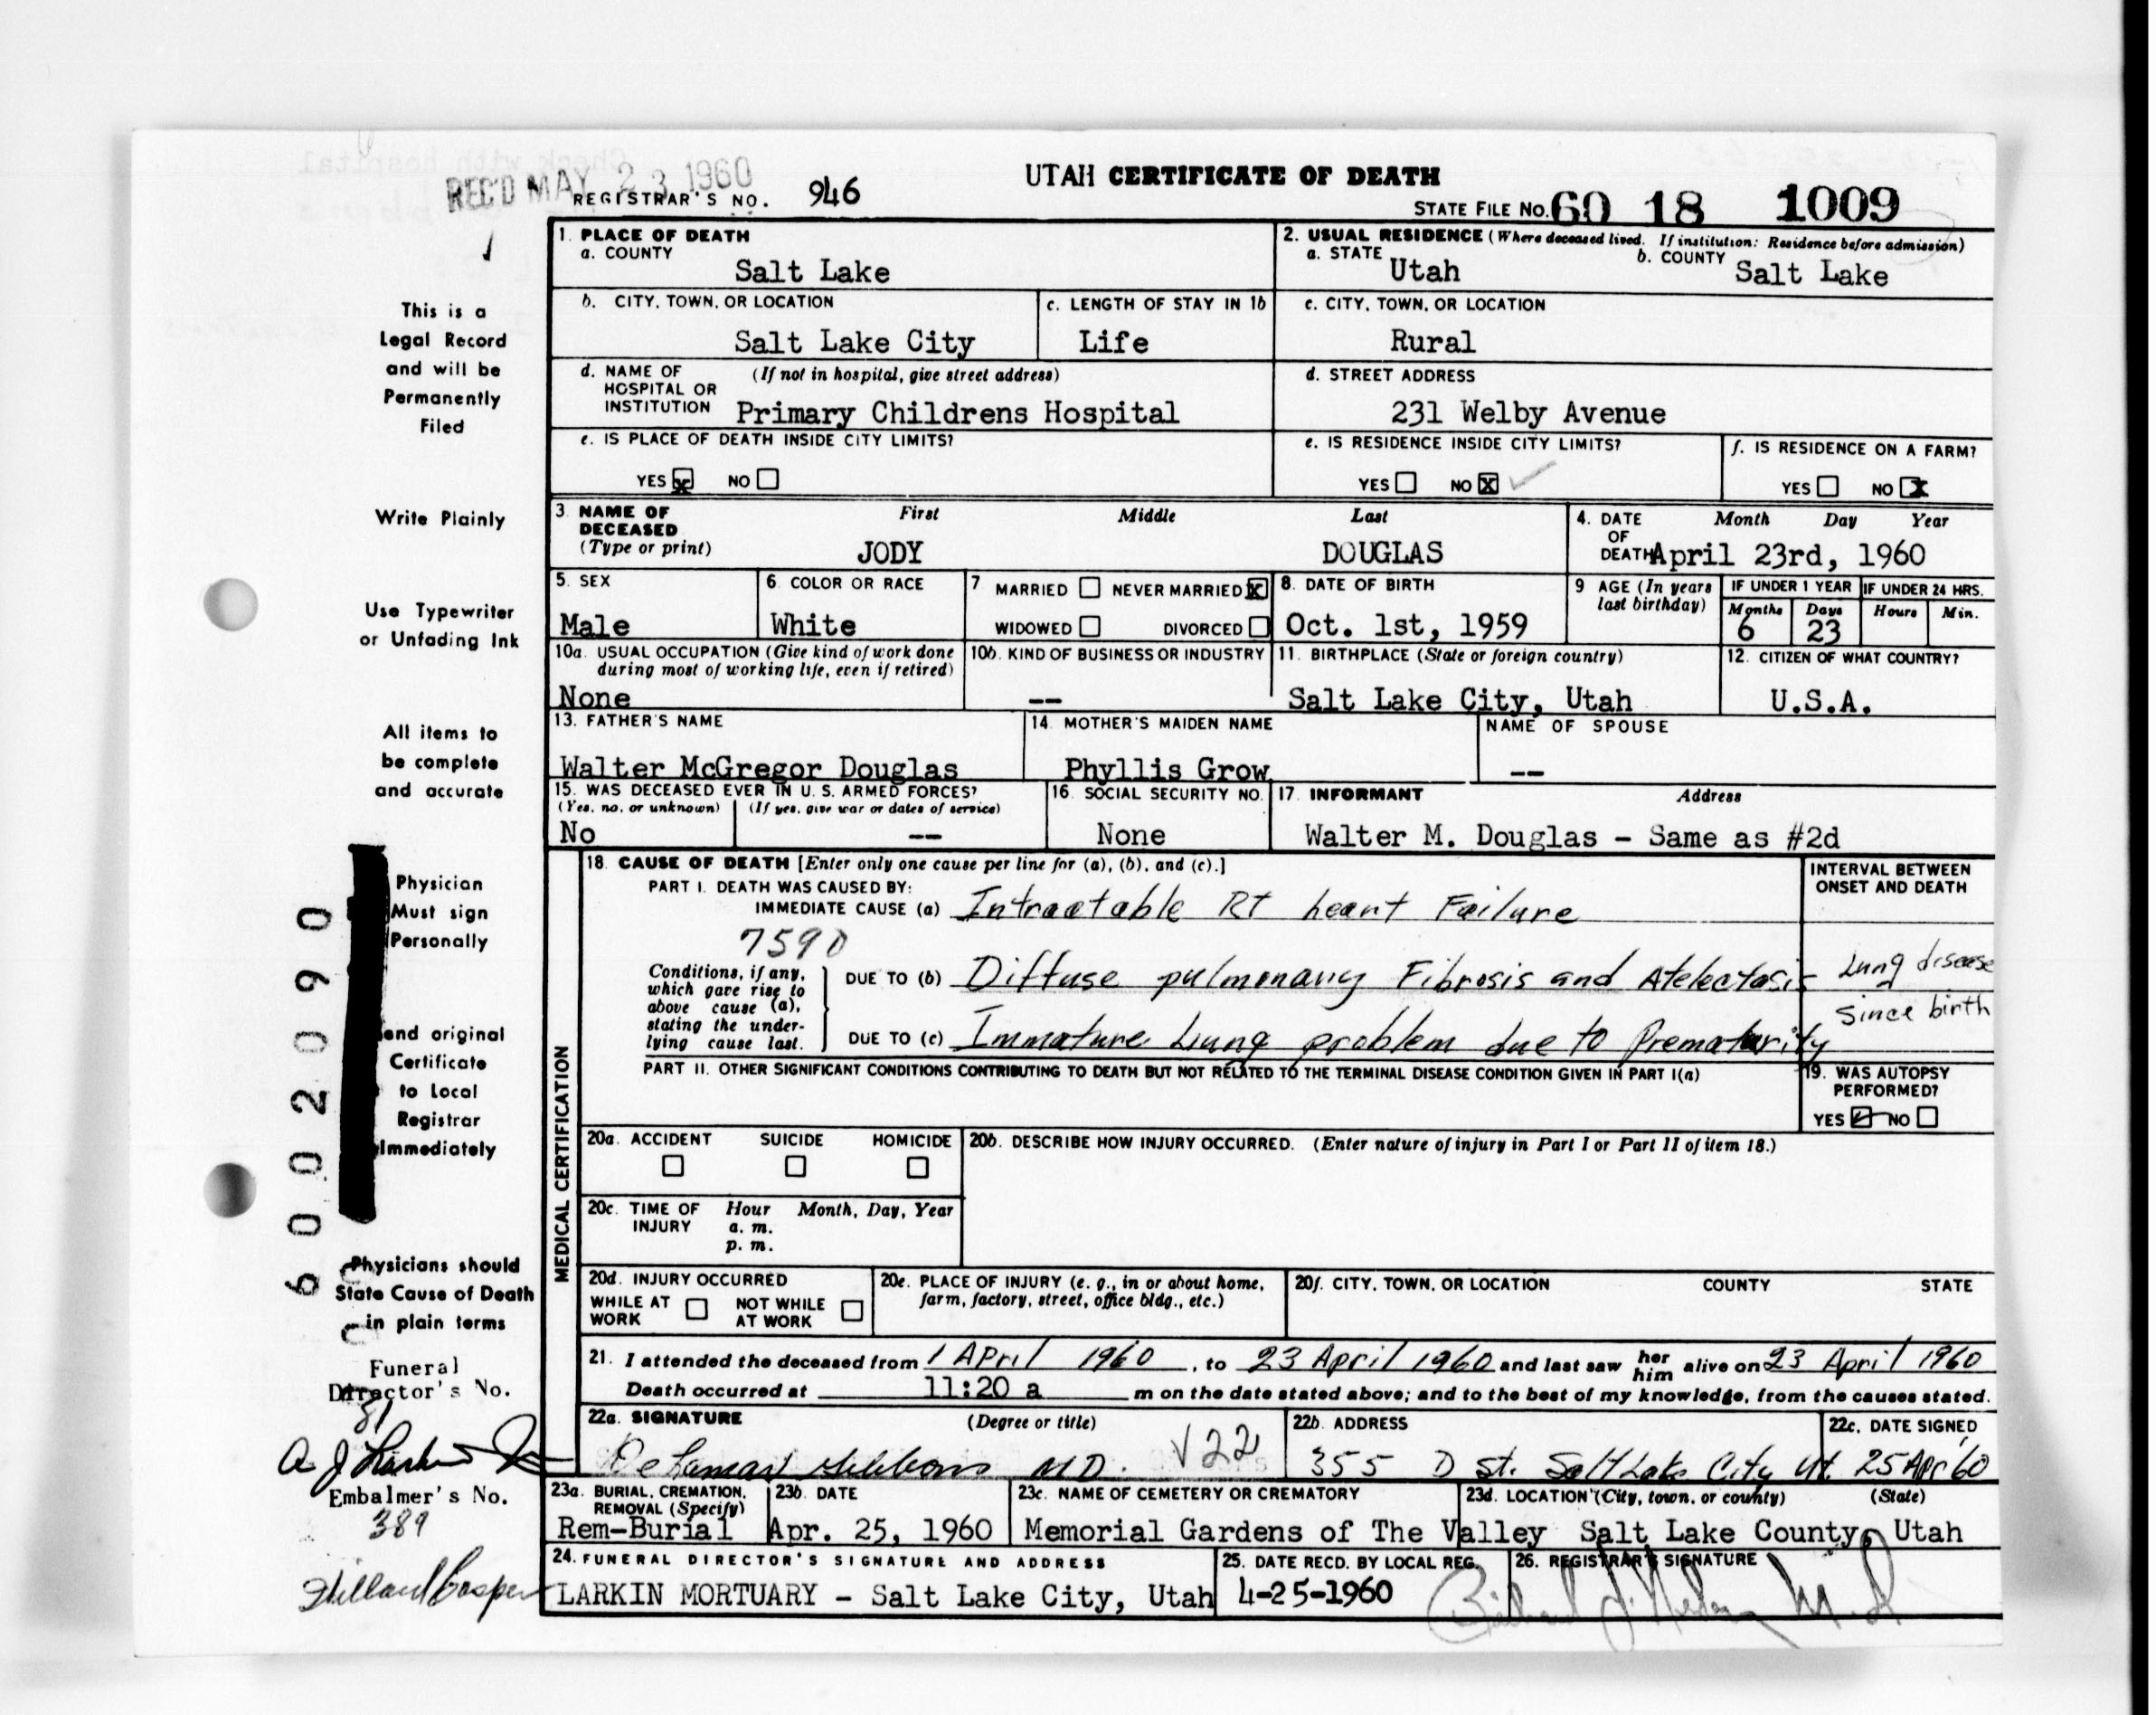 REC'D MAY 23 1960
REGISTRAR'S NO. 946
UTAH CERTIFICATE OF DEATH
STATE FILE NO. 60 18 1009
This is a
Legal Record
and will be
Permanently
Filed
Write Plainly
Use Typewriter
or Unfading Ink
All items to
be complete
and accurate
Physician
Must sign
Personally
end original
Certificate
to Local
Registrar
Immediately
Physicians should
State Cause of Death
in plain terms
Funeral
Director's No.
81
A J Larkin Jr
Embalmer's No.
389
60020090
1. PLACE OF DEATH
a. COUNTY
Salt Lake
2. USUAL RESIDENCE (Where deceased lived. If institution: Residence before admission)
a. STATE Utah
b. COUNTY Salt Lake
b. CITY, TOWN, OR LOCATION
Salt Lake City
c. LENGTH OF STAY IN 1b
Life
c. CITY, TOWN, OR LOCATION
Rural
d. NAME OF HOSPITAL OR INSTITUTION (If not in hospital, give street address)
Primary Childrens Hospital
d. STREET ADDRESS
231 Welby Avenue
e. IS PLACE OF DEATH INSIDE CITY LIMITS?
YES X NO
e. IS RESIDENCE INSIDE CITY LIMITS?
YES NO X
f. IS RESIDENCE ON A FARM?
YES NO X
3. NAME OF DECEASED (Type or print)
First Middle Last
JODY DOUGLAS
4. DATE OF DEATH Month Day Year
April 23rd, 1960
5. SEX
Male
6. COLOR OR RACE
White
7 MARRIED NEVER MARRIED X
WIDOWED DIVORCED
8. DATE OF BIRTH
Oct. 1st, 1959
9 AGE (In years last birthday)
IF UNDER 1 YEAR
Months Days
6 23
IF UNDER 24 HRS.
Hours Min.
10a. USUAL OCCUPATION (Give kind of work done during most of working life, even if retired)
None
10b. KIND OF BUSINESS OR INDUSTRY
--
11. BIRTHPLACE (State or foreign country)
Salt Lake City, Utah
12. CITIZEN OF WHAT COUNTRY?
U.S.A.
13. FATHER'S NAME
Walter McGregor Douglas
14. MOTHER'S MAIDEN NAME
Phyllis Grow
NAME OF SPOUSE
--
15. WAS DECEASED EVER IN U. S. ARMED FORCES?
(Yes, no, or unknown) (If yes, give war or dates of service)
No --
16. SOCIAL SECURITY NO.
None
17. INFORMANT Address
Walter M. Douglas - Same as #2d
MEDICAL CERTIFICATION
18. CAUSE OF DEATH [Enter only one cause per line for (a), (b), and (c).]
PART I. DEATH WAS CAUSED BY:
IMMEDIATE CAUSE (a) Intractable Rt heart Failure
7590
Conditions, if any, which gave rise to above cause (a), stating the underlying cause last.
DUE TO (b) Diffuse pulmonary Fibrosis and Atelectasis
DUE TO (c) Immature Lung problem due to Prematurity
INTERVAL BETWEEN ONSET AND DEATH
Lung disease
since birth
PART II. OTHER SIGNIFICANT CONDITIONS CONTRIBUTING TO DEATH BUT NOT RELATED TO THE TERMINAL DISEASE CONDITION GIVEN IN PART I(a)
19. WAS AUTOPSY PERFORMED?
YES ✓ NO
20a. ACCIDENT SUICIDE HOMICIDE
20b. DESCRIBE HOW INJURY OCCURRED. (Enter nature of injury in Part I or Part II of item 18.)
20c. TIME OF INJURY Hour Month, Day, Year
a. m.
p. m.
20d. INJURY OCCURRED
WHILE AT WORK NOT WHILE AT WORK
20e. PLACE OF INJURY (e. g., in or about home, farm, factory, street, office bldg., etc.)
20f. CITY, TOWN, OR LOCATION COUNTY STATE
21. I attended the deceased from 1 April 1960, to 23 April 1960 and last saw her him alive on 23 April 1960
Death occurred at 11:20 a m on the date stated above; and to the best of my knowledge, from the causes stated.
22a. SIGNATURE (Degree or title)
DeLamar Gibbons MD. V22
22b. ADDRESS
355 D st. Salt Lake City Ut.
22c. DATE SIGNED
25 Apr 60
23a. BURIAL, CREMATION, REMOVAL (Specify)
Rem-Burial
23b. DATE
Apr. 25, 1960
23c. NAME OF CEMETERY OR CREMATORY
Memorial Gardens of The Valley
23d. LOCATION (City, town, or county) (State)
Salt Lake County, Utah
24. FUNERAL DIRECTOR'S SIGNATURE AND ADDRESS
LARKIN MORTUARY - Salt Lake City, Utah
25. DATE RECD. BY LOCAL REG.
4-25-1960
26. REGISTRAR'S SIGNATURE